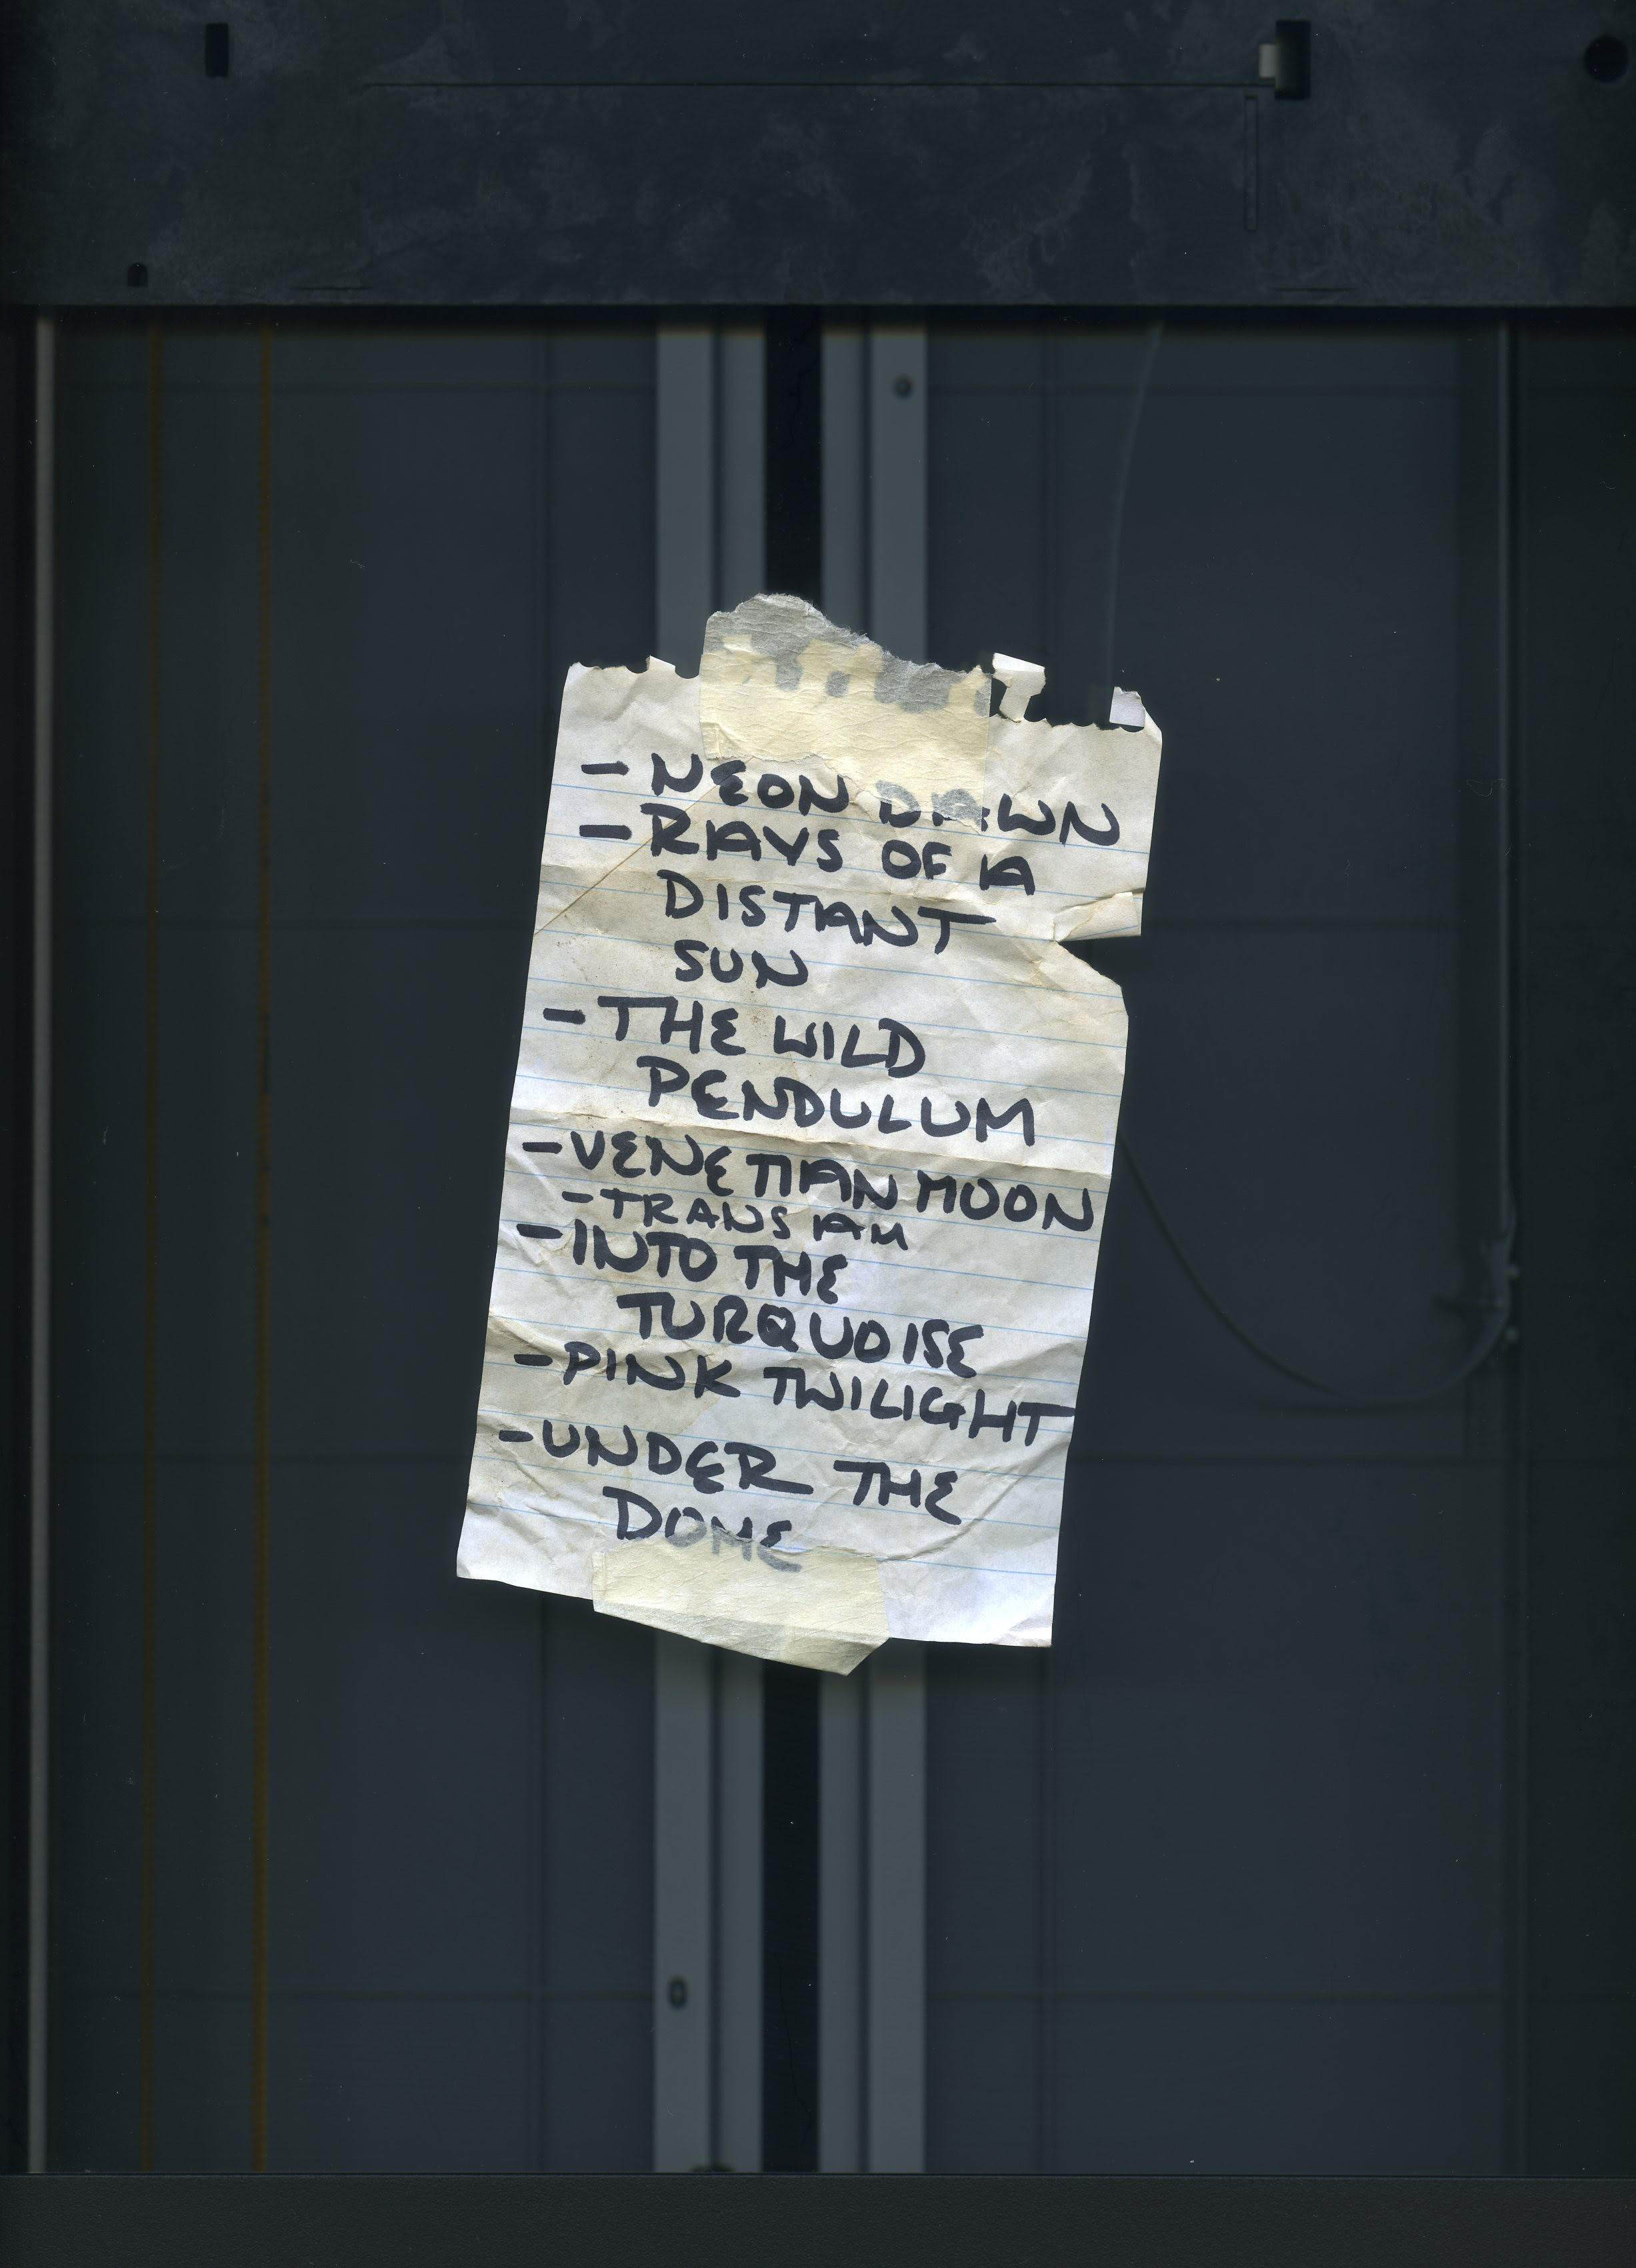 - NEON DAWN
- RAYS OF A
DISTANT
SUN
- THE WILD
PENDULUM
- VENETIAN MOON
- TRANS AM
- INTO THE
TURQUOISE
- PINK TWILIGHT
- UNDER THE
DOME